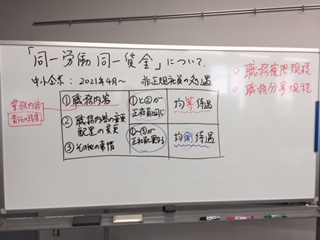 「同一労働 同一賃金」について
中小企業：2021年4月～ 非正規社員の処遇
○職務権限規程
○職務分掌規程
業務内容
責任の程度
①職務内容
②職務内容の変更
配置の変更
③その他の事情
①と②が
正社員同じ
均等待遇
①～③が
正社員異なる
均衡待遇